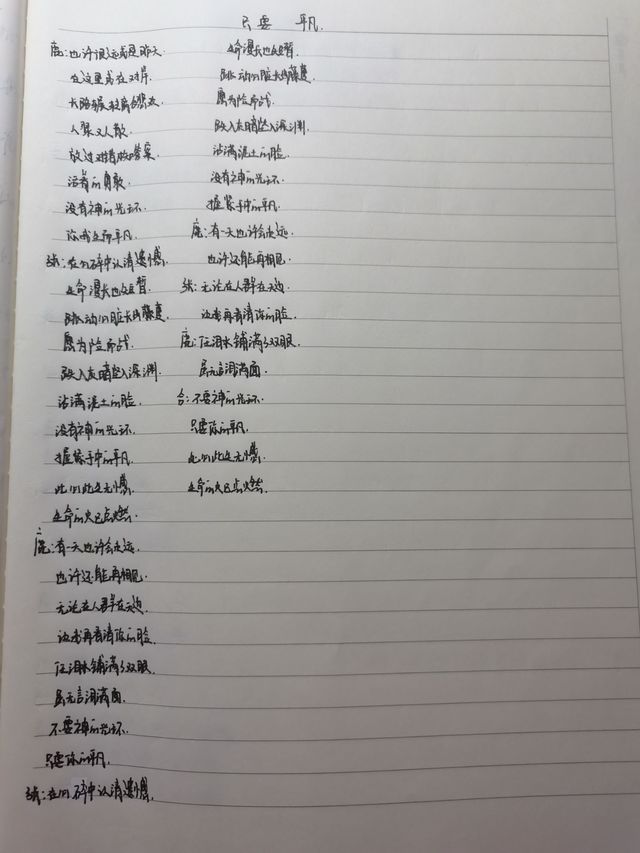 只要 平凡.
鹿:也许很远或是昨天
在这里或在对岸.
长路辗转离合悲欢
人聚又人散.
放过对错才知答案.
活着的勇敢.
没有神的光环.
你我生而平凡.
张:在心碎中认清遗憾.
生命漫长也短暂.
跳动心脏长出藤蔓.
愿为险而战.
跌入灰暗坠入深渊.
沾满泥土的脸.
没有神的光环.
握紧手中的平凡
此心此生无憾.
生命的火已点燃.
鹿:有一天也许会走远.
也许还能再相见.
无论在人群在天边.
让我再看清你的脸.
任泪水铺满了双眼.
虽无言泪满面.
不要神的光环.
只要你的平凡.
张:在心碎中认清遗憾.
生命漫长也短暂.
跳动心脏长出藤蔓.
愿为险而战.
跌入灰暗坠入深渊.
沾满泥土的脸.
没有神的光环.
握紧手中的平凡.
鹿:有一天也许会走远.
也许还能再相见.
张:无论在人群在天边
让我再看清你的脸.
鹿:任泪水铺满了双眼.
虽无言泪满面.
合:不要神的光环.
只要你的平凡.
此心此生无憾.
生命的火已点燃.